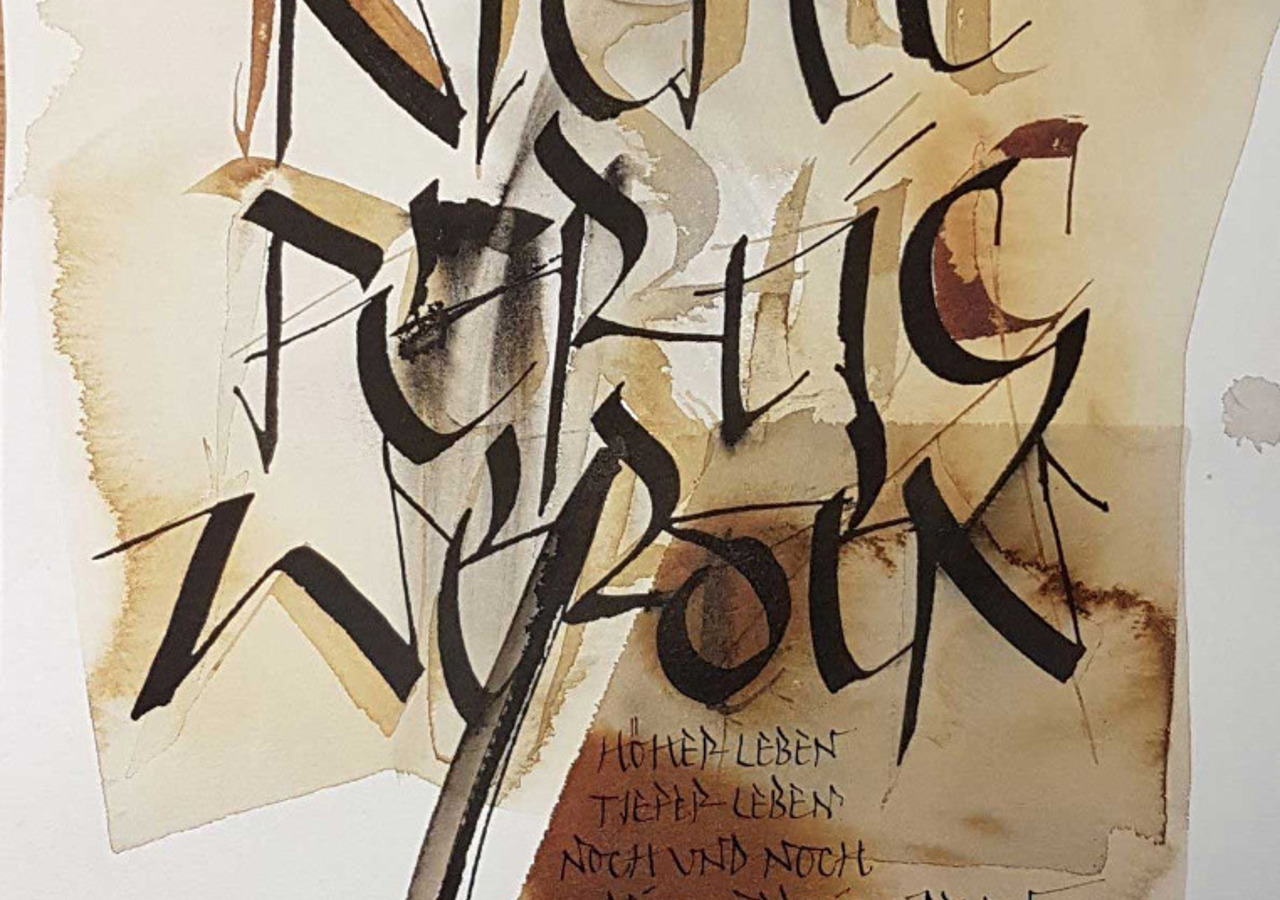 NICHT
FERTIG
WERDEN
HÖHER LEBEN
TIEFER LEBEN
NOCH UND NOCH